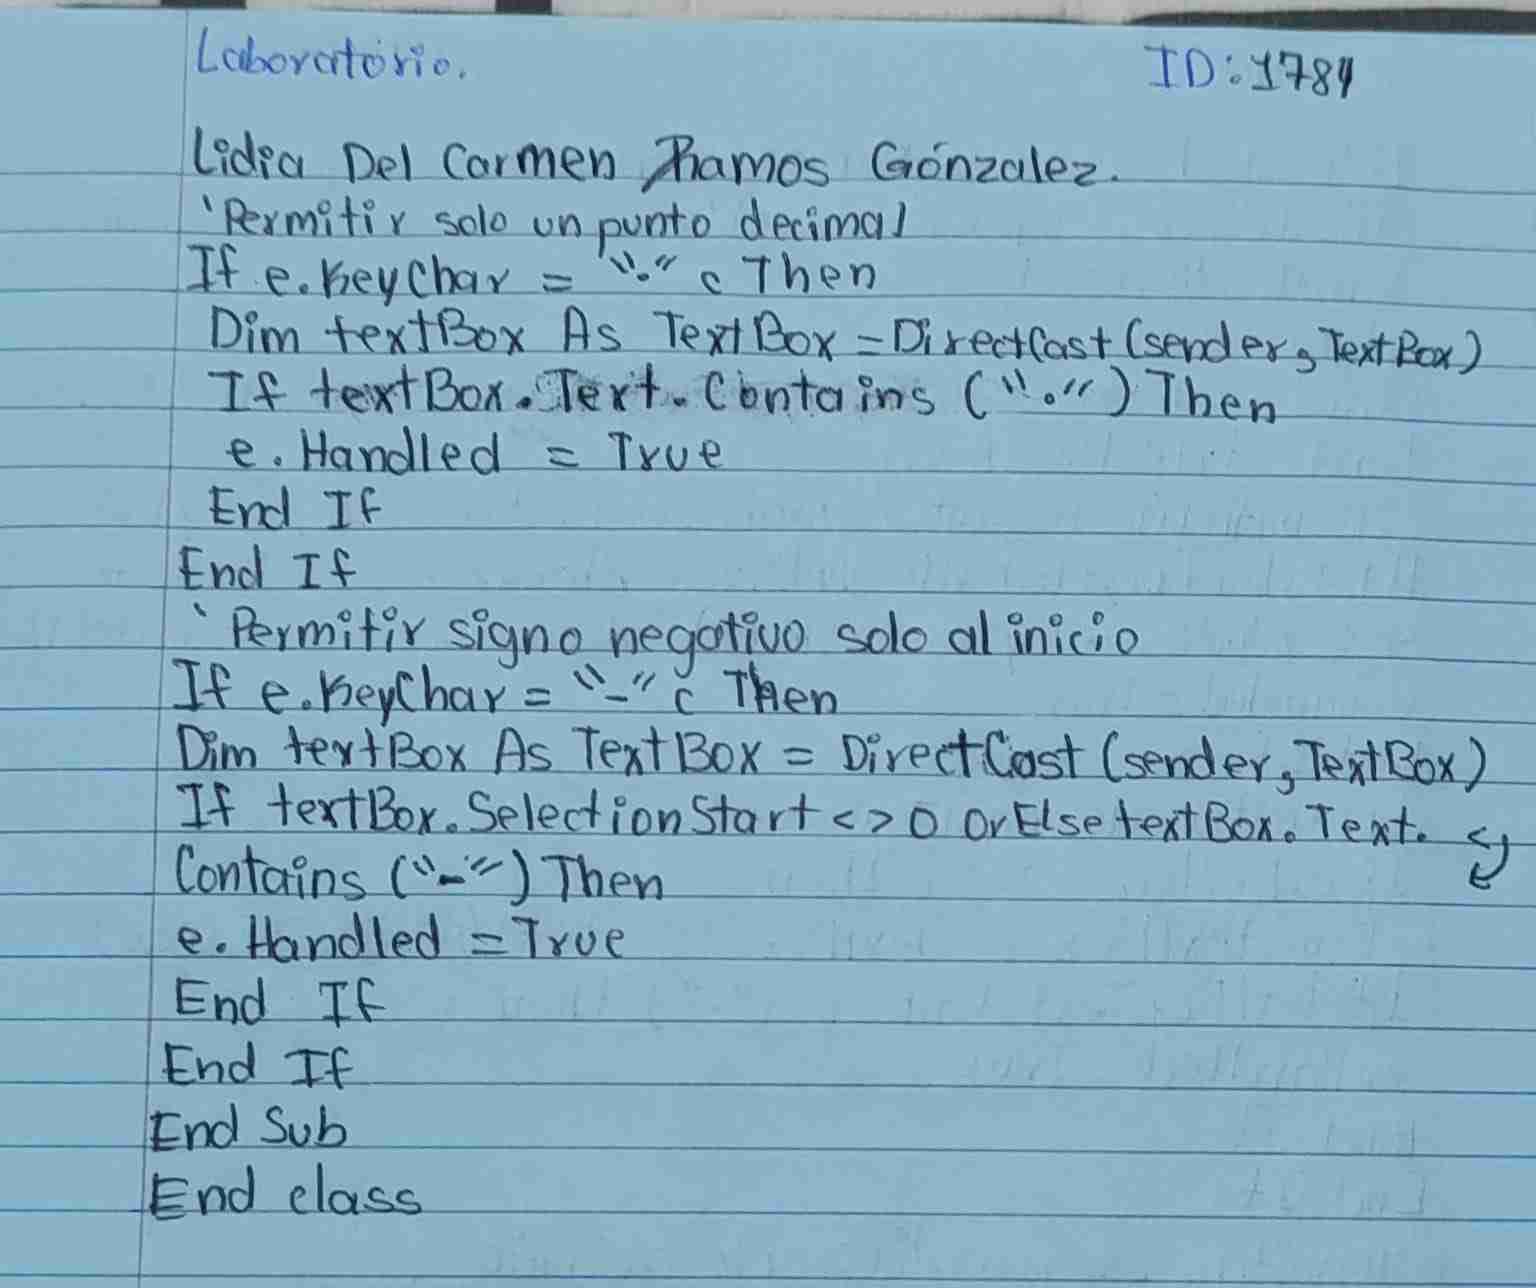 Laboratorio.
ID: 1784
Lidia Del Carmen Ramos Gónzalez.
'Permitir solo un punto decimal
If e.KeyChar = "."c Then
Dim textBox As TextBox = DirectCast (sender, TextBox)
If textBox.Text.Contains (".") Then
e.Handled = True
End If
End If
'Permitir signo negativo solo al inicio
If e.KeyChar = "-"c Then
Dim textBox As TextBox = DirectCast (sender, TextBox)
If textBox.SelectionStart <> 0 OrElse textBox.Text.
Contains ("-") Then
e.Handled = True
End If
End If
End Sub
End class